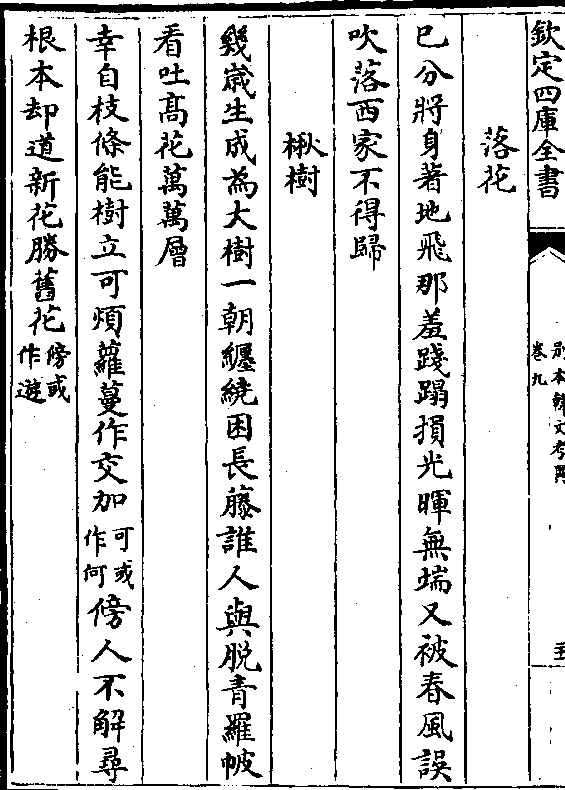 欽定四庫全書
別本韓文考異
卷九
落花
已分將身著地飛那羞踐蹋損光暉無端又被春風誤
吹落西家不得歸
楸樹
幾歲生成為大樹一朝纏繞困長藤誰人與脫青羅帔
看吐高花萬萬層
幸自枝條能樹立可煩蘿蔓作交加可或作何傍人不解尋
根本却道新花勝舊花傍或作遊